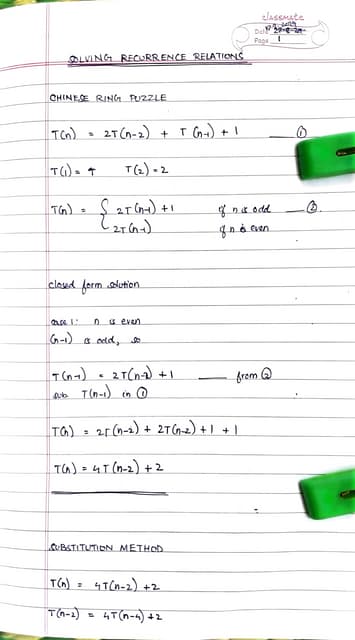 classmate
Date
Page 1
SOLVING RECURRENCE RELATIONS
CHINESE RING PUZZLE
T(n) = 2T(n-2) + T(n-1) + 1 ——— ①
T(1) = 1 T(2) = 2
T(n) = { 2T(n-1) + 1 if n is odd —— ②
2T(n-1) if n is even
closed form solution
case 1: n is even
(n-1) is odd, so
T(n-1) = 2T(n-2) + 1 ——— from ②
sub T(n-1) in ①
T(n) = 2T(n-2) + 2T(n-2) + 1 + 1
T(n) = 4T(n-2) + 2
SUBSTITUTION METHOD
T(n) = 4T(n-2) + 2
T(n-2) = 4T(n-4) + 2